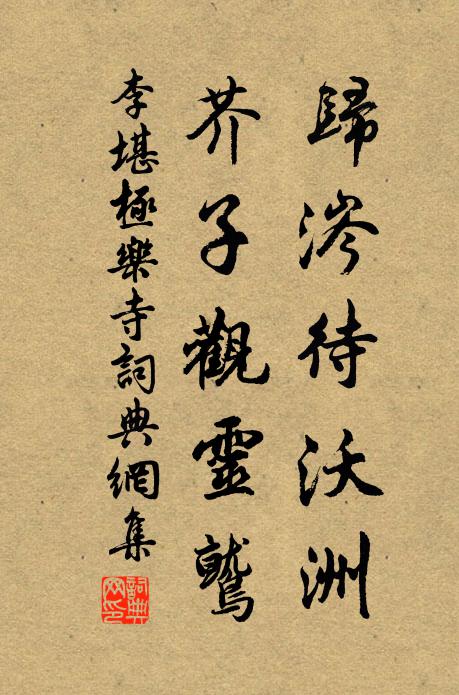 歸涔待沃洲
芥子觀靈鷲
李堪極樂寺詞典網集
詞典网印